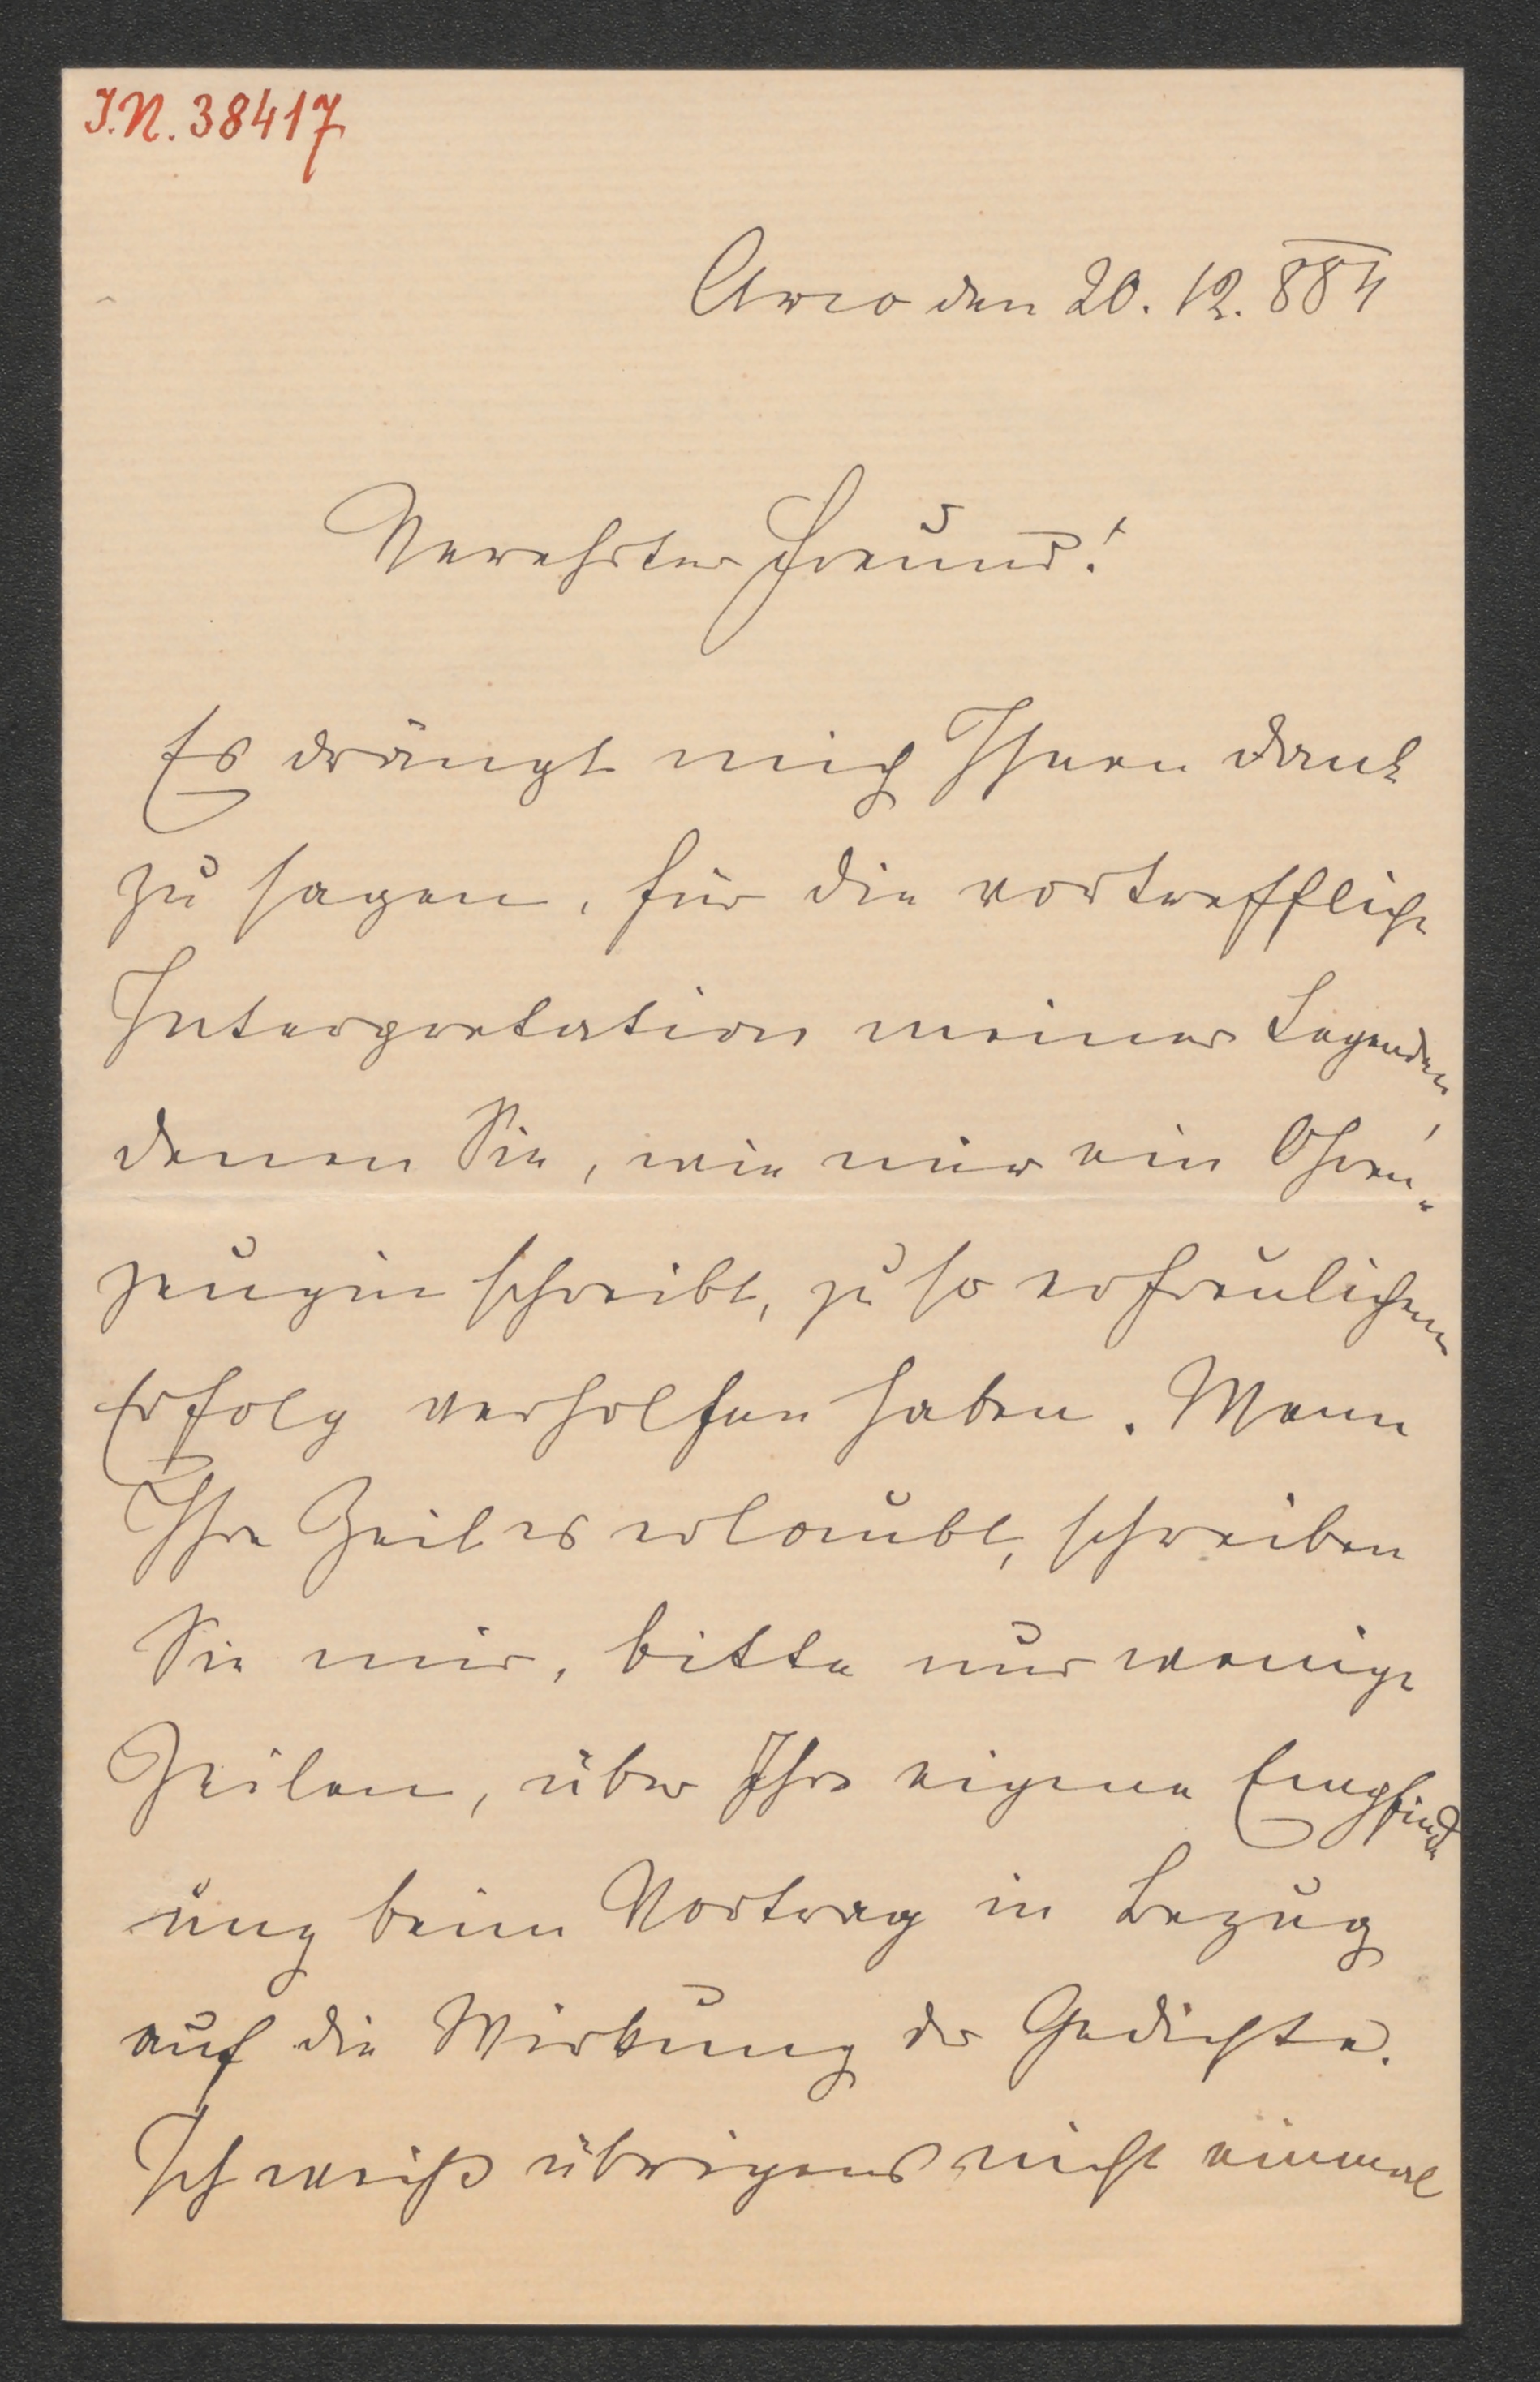 I.N. 38417
Arco den 20. 12. 884
Verehrter Freund!
Es drängt mich Ihnen Dank
zu sagen, für die vortreffliche
Interpretation meiner Legenden,
denen Sie, wie mir ein Ohren-
zeugin schreibt, zu so erfreulichem
Erfolg verholfen haben. Wenn
Ihre Zeit es erlaubt, schreiben
Sie mir, bitte nur wenige
Zeilen, über Ihre eigene Empfind-
ung beim Vortrag in Bezug
auf die Wirkung der Gedichte.
Ich weiß übrigens nicht einmal